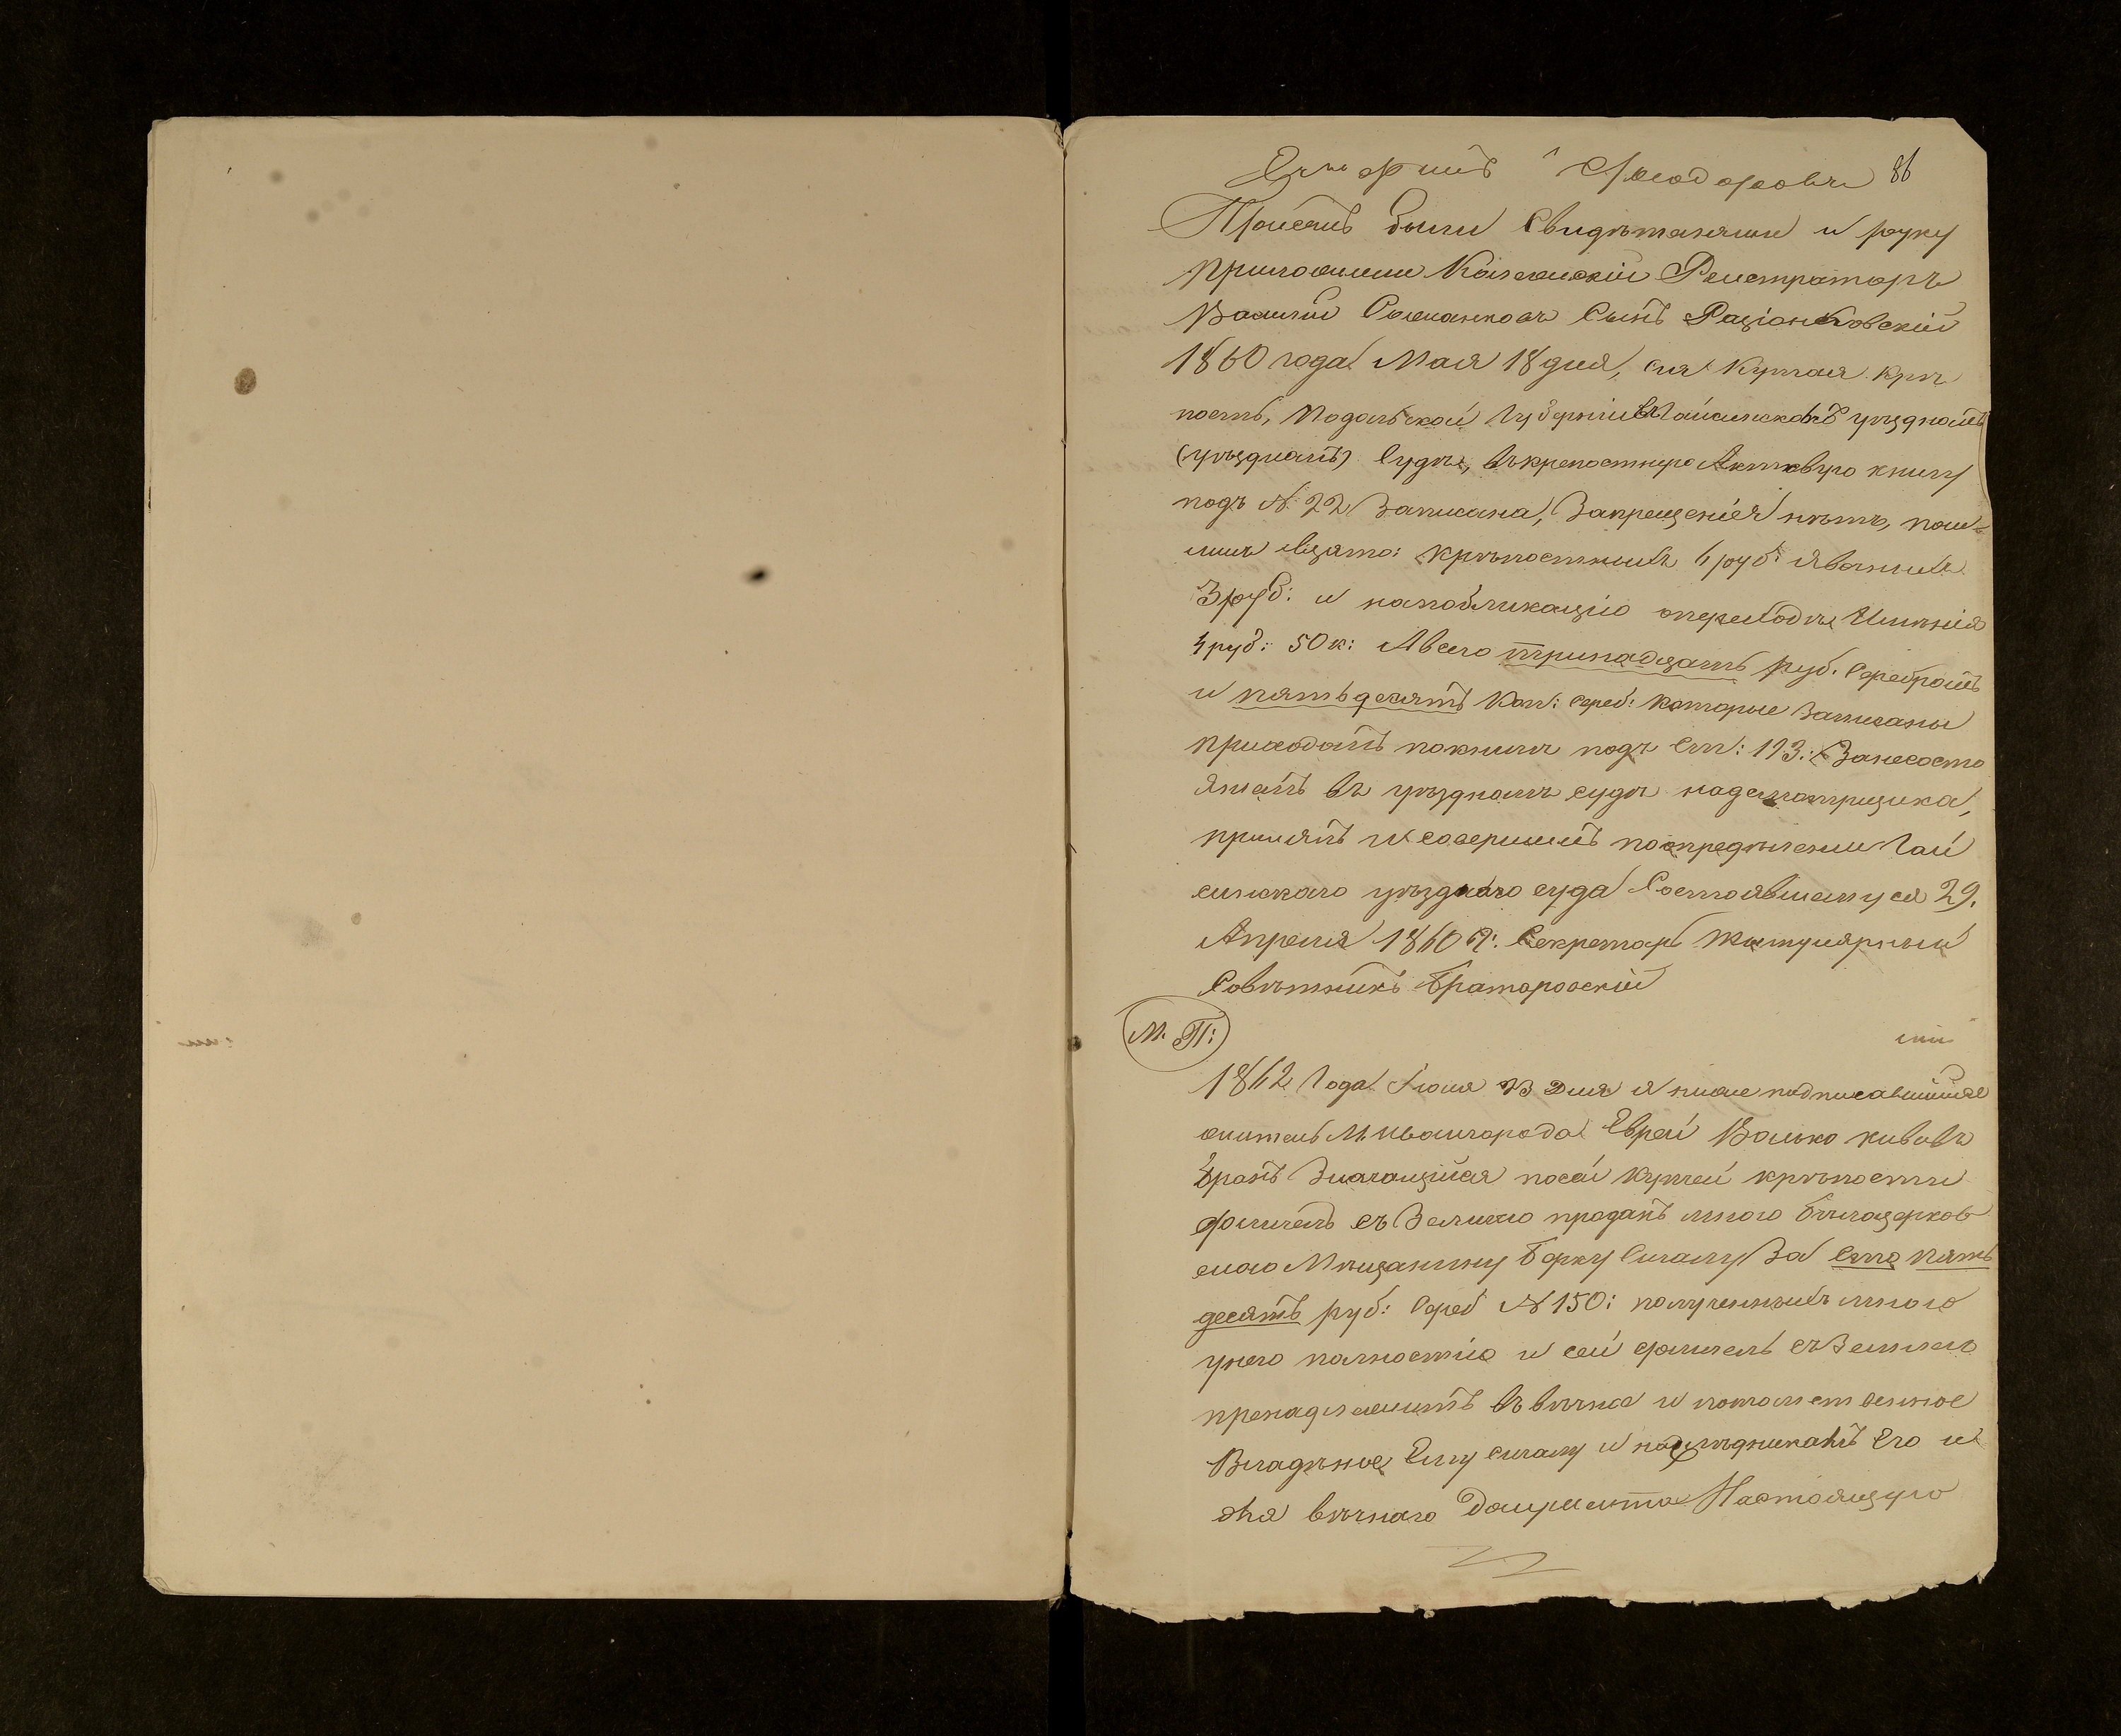 86
Притомъ были Свидѣтелями и руку
приложили Колежскій Регистраторъ
Василій Сынъ Раціонковскій
1860 года Мая 18 дня, сія Купчая крѣ
пость, Подольской Губерніи въ Гайсинскомъ уѣздномъ
(уѣздномъ) Судѣ, въ крепостную Актовую книгу
подъ № 22 Записана, Запрещенія нѣтъ, пош-
линъ взято: крѣпостныхъ 6 руб: явочныхъ
3 руб: и напобликацію опереходѣ Имѣнія
4 руб: 50 к: Авсего тринадцать руб. Серебромъ
и пятьдесятъ Коп: сереб: которые Записаны
приходомъ покнигѣ подъ Ст: 193: Занесосто
яніемъ въ уѣздномъ судѣ надсмотрщика,
принялъ и совершилъ поопредѣленію Гай
синскаго уѣзднаго суда Состоявшемуся 29.
Апреля 1860 г: Секретарь Титулярный
Совѣтникъ Братаровскій
М. П:
1862 Года Іюля 23 Дня я ниже подписавшійся
житель М. Ивангорода Еврей Волько
Значащійся посей Купчей крѣпости
фольгель съ Землею проданъ мною бѣлоцерков
скому Мѣщанину Берку За Сто пять
десятъ руб: Сереб № 150: полученныхъ мною
унего полностію и сей съ Землею
пренадлежитъ въ вѣчное и потомственное
Владѣніе Ему и наслѣдникамъ Его и
для вѣчнаго Документа Настоящую